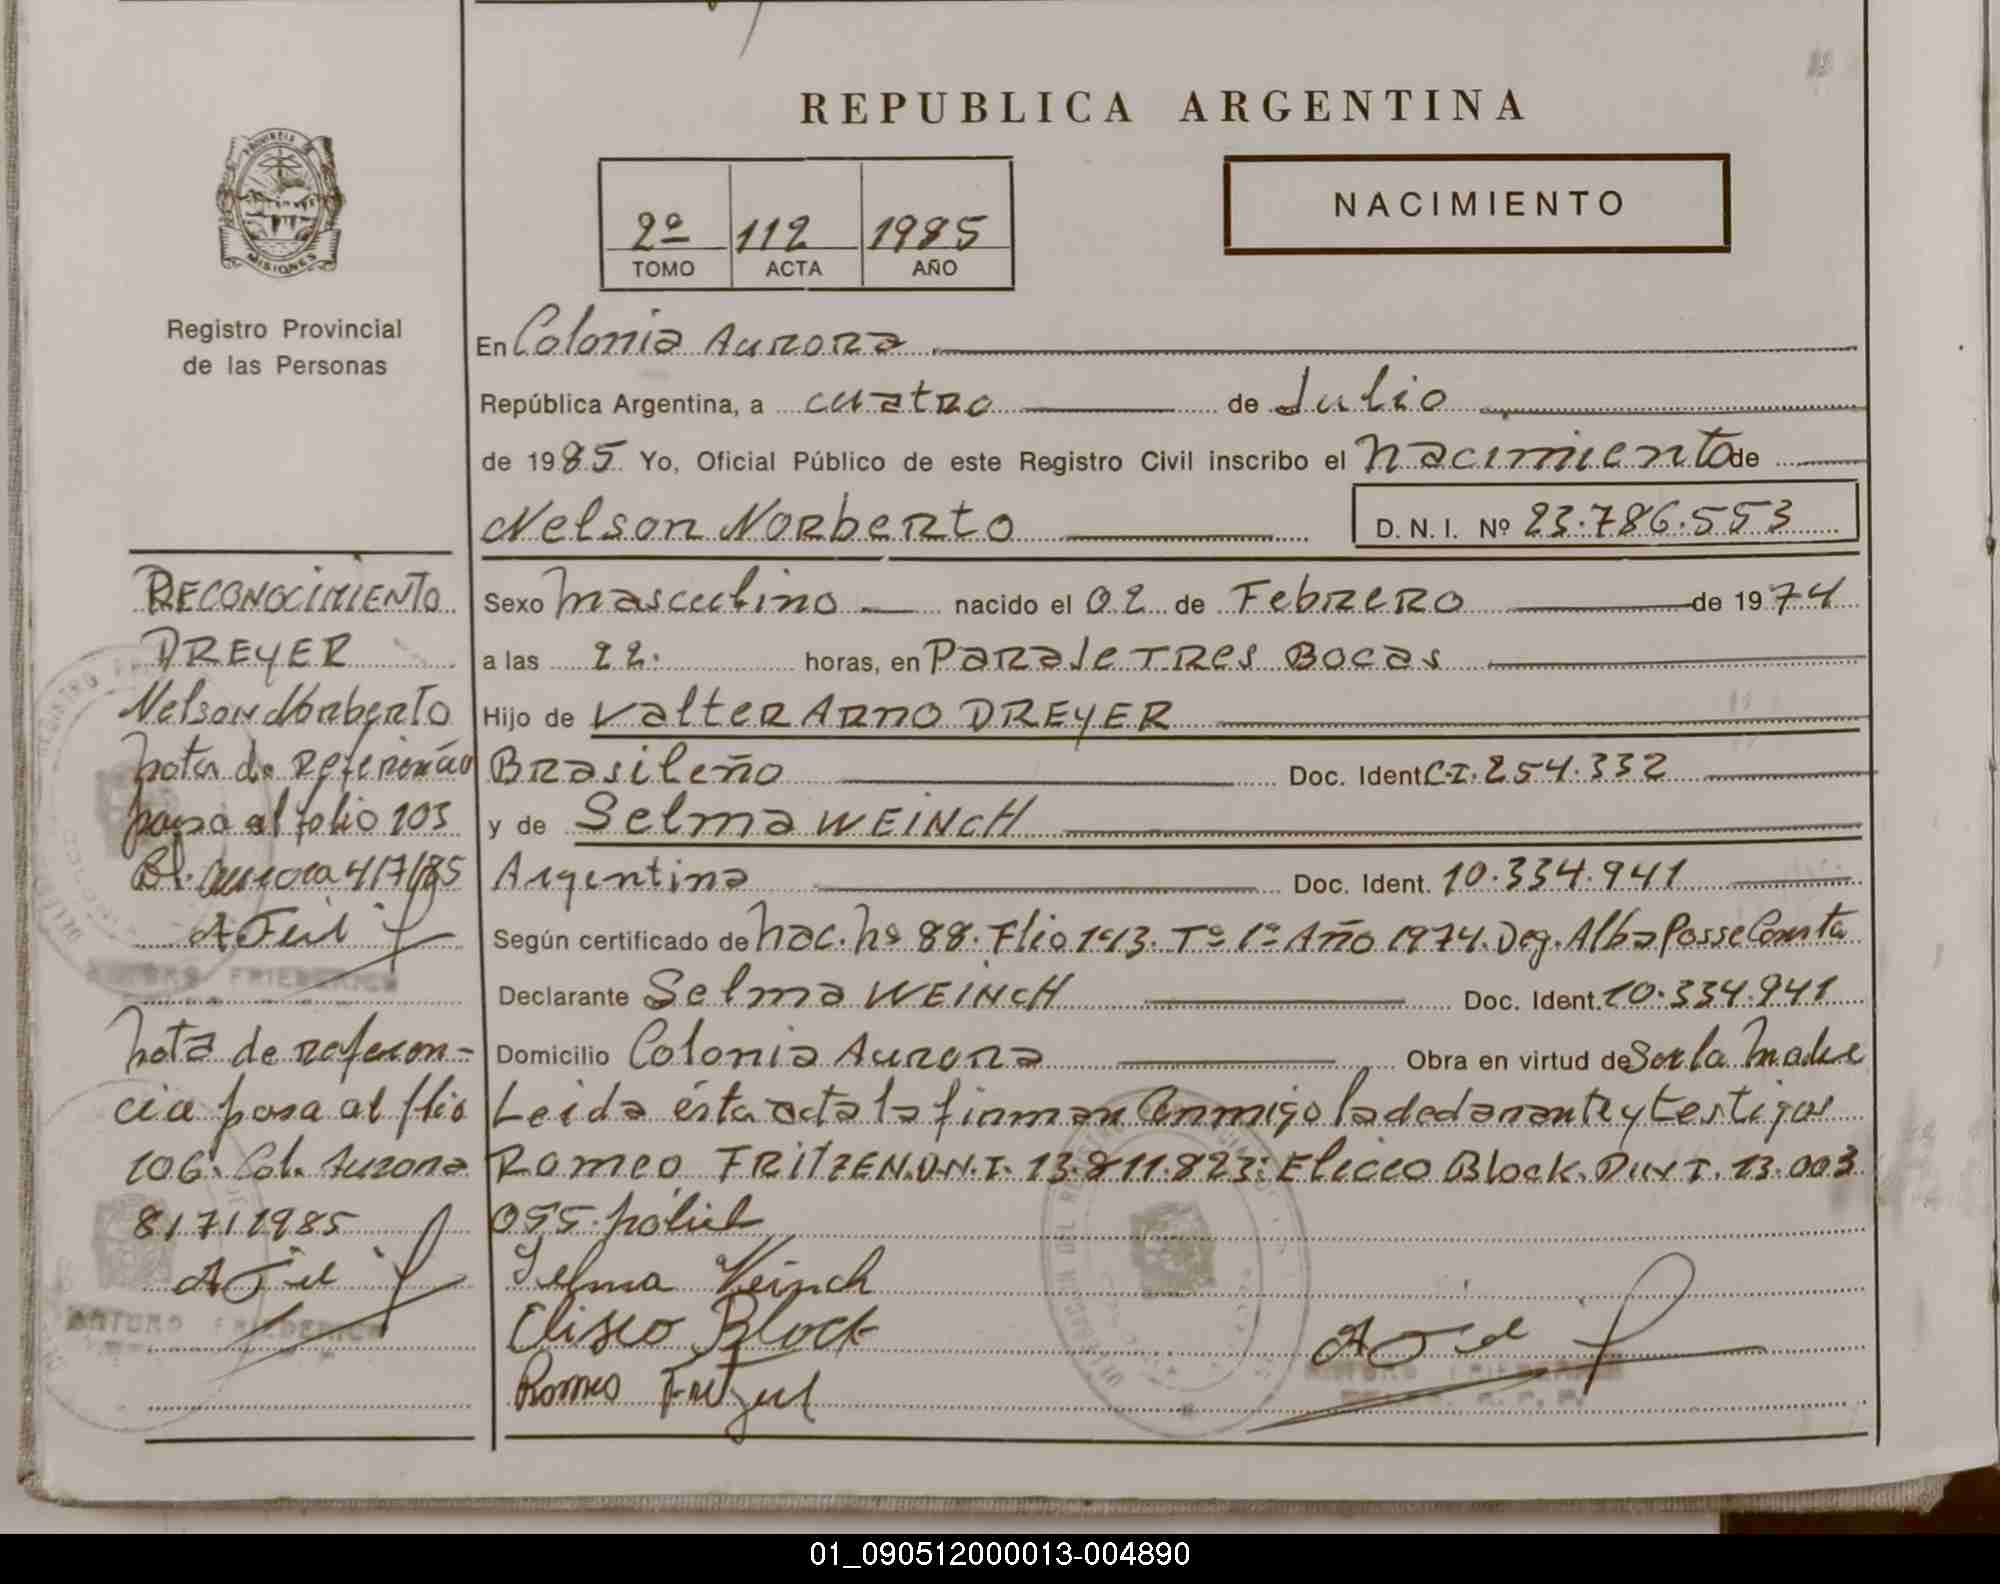 REPUBLICA ARGENTINA
PROVINCIA DE
MISIONES
2º 112 1985
TOMO ACTA AÑO
NACIMIENTO
Registro Provincial
de las Personas
En Colonia Aurora
República Argentina, a cuatro de Julio
de 1985 Yo, Oficial Público de este Registro Civil inscribo el nacimiento de
Nelson Norberto D.N.I. Nº 23.786.553
Sexo masculino nacido el 02 de Febrero de 1974
a las 22. horas, en Paraje Tres Bocas
Hijo de Valter Arno DREYER
Brasileño Doc. Ident C.I. 254.332
y de Selma WEINCH
Argentina Doc. Ident. 10.334.941
Según certificado de nac. nº 88. Flio 143. Tº 1º Año 1974. Deg. Alba Posse Consta
Declarante Selma WEINCH Doc. Ident. 10.334.941
Domicilio Colonia Aurora Obra en virtud de Ser la madre
Leida ésta acta la firman Conmigo la declarante y testigos
Romeo FRITZEN. D.N.I. 13.811.823: Eliceo Block. D.N.I. 13.003
055.
Selma Weinch
Eliseo Block
Romeo
RECONOCIMIENTO
DREYER
Nelson Norberto
nota de referencia
pasa al folio 103
Aurora 4/7/85
ARTURO FRIEDERICH
nota de referen-
cia pasa al flio
106. Col. Aurora
8/7/1985
ARTURO FRIEDERICH
01_090512000013-004890